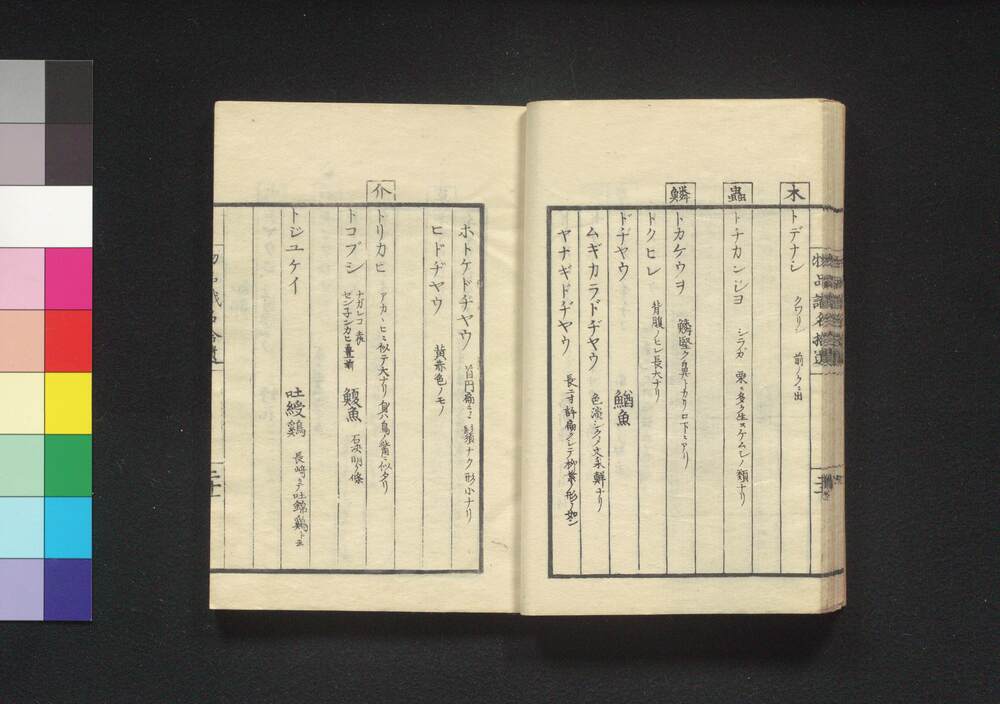 木
トデナシ クワリン 前ノクニ出
蟲
トチカンジヨ シラガ 栗ニ多ク生スケムシノ類ナリ
鱗
トカケウヲ 鱗堅ク
トクヒレ 背腹ノヒレ長大ナリ
ドヂヤウ 鰌魚
ムギカラドヂヤウ 色淡シクノ文采鮮ナリ
ヤナギドヂヤウ 長二寸許扁クシテ柳葉ノ形ノ如シ
ホトケドヂヤウ 首円扁ニシテ鬚ナク形小ナリ
ヒドヂヤウ 黄赤色ノモノ
介
トリカヒ アカヾヒニ似テ大ナリ 鳥ノ嘴ニ似タリ
トコブシ ナガレコ 鰒魚 石决明ノ條
トジユケイ 吐綬鷄 長崎ニテ吐錦鷄ト云